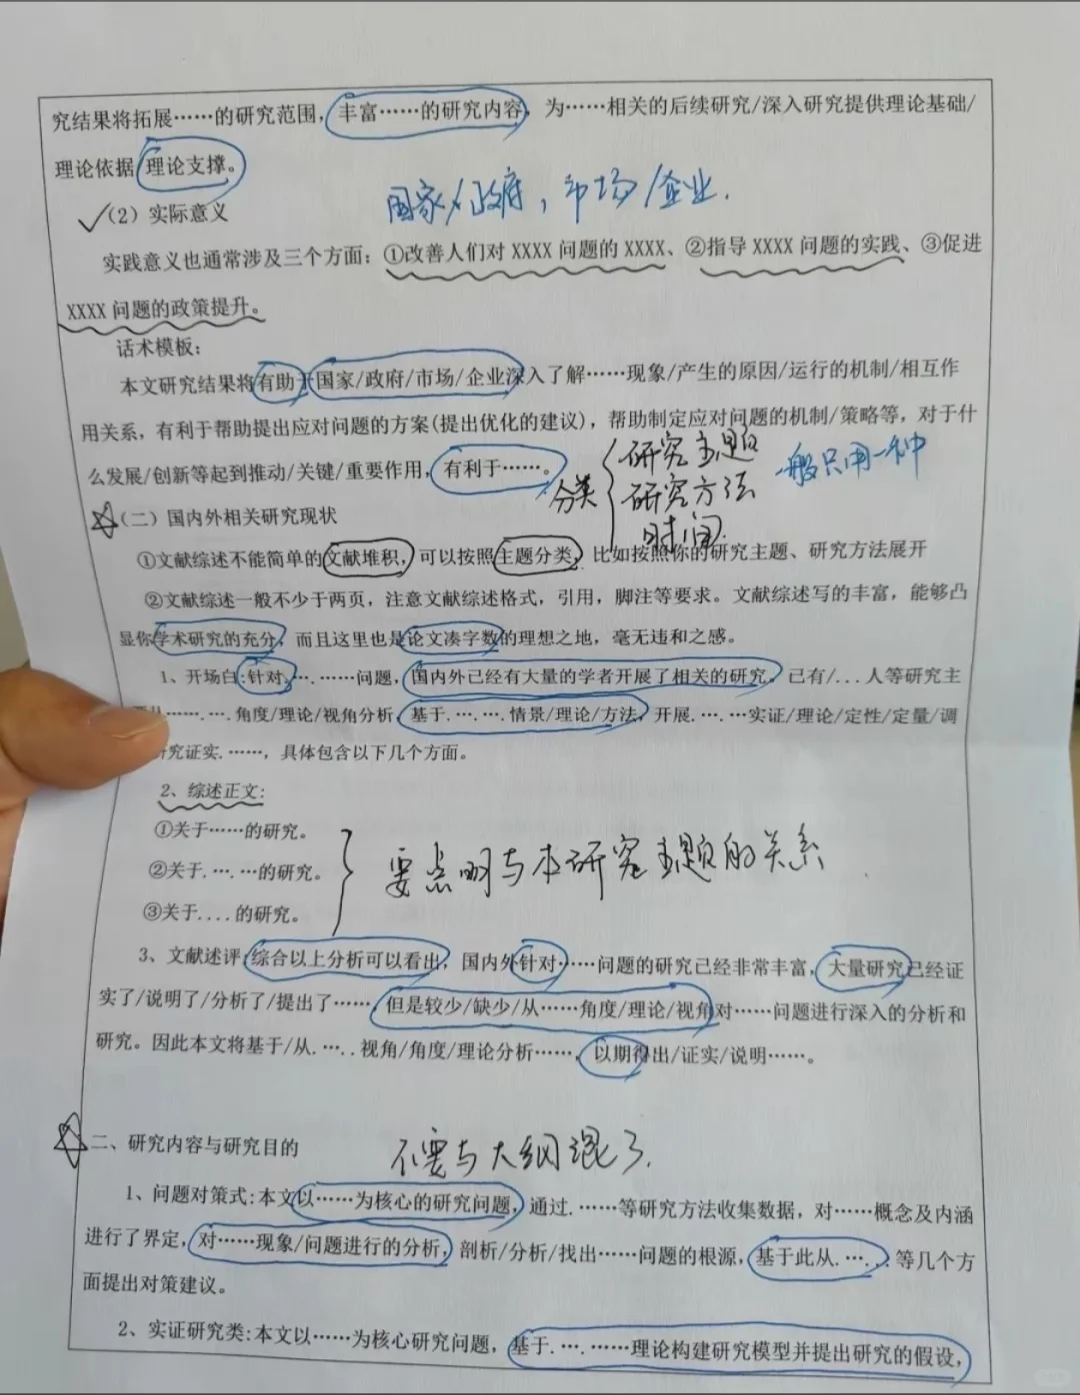 究结果将拓展……的研究范围，丰富……的研究内容，为……相关的后续研究/深入研究提供理论基础/
理论依据 理论支撑。
国家/政府，市场/企业.
（2）实际意义
实践意义也通常涉及三个方面：①改善人们对 XXXX 问题的 XXXX、②指导 XXXX 问题的实践、③促进
XXXX 问题的政策提升。
话术模板：
本文研究结果将有助于国家/政府/市场/企业深入了解……现象/产生的原因/运行的机制/相互作
用关系，有利于帮助提出应对问题的方案(提出优化的建议)，帮助制定应对问题的机制/策略等，对于什
么发展/创新等起到推动/关键/重要作用，有利于……。
分类
研究主题
研究方法
时间
一般只用一种
（二）国内外相关研究现状
①文献综述不能简单的文献堆积，可以按照主题分类，比如按照你的研究主题、研究方法展开
②文献综述一般不少于两页，注意文献综述格式，引用，脚注等要求。文献综述写的丰富，能够凸
显你学术研究的充分，而且这里也是论文凑字数的理想之地，毫无违和之感。
1、开场白:针对.….……问题，国内外已经有大量的学者开展了相关的研究。已有/...人等研究主
从…….….角度/理论/视角分析，基于.….….情景/理论/方法，开展.….…实证/理论/定性/定量/调
研究证实.……，具体包含以下几个方面。
2、综述正文:
①关于……的研究。
②关于.….…的研究。
③关于....的研究。
要点明与本研究主题的关系
3、文献述评:综合以上分析可以看出，国内外针对……问题的研究已经非常丰富，大量研究已经证
实了/说明了/分析了/提出了……，但是较少/缺少/从……角度/理论/视角对……问题进行深入的分析和
研究。因此本文将基于/从.…..视角/角度/理论分析……，以期得出/证实/说明……。
二、研究内容与研究目的
不要与大纲混了.
1、问题对策式:本文以……为核心的研究问题，通过.……等研究方法收集数据，对……概念及内涵
进行了界定，对……现象/问题进行的分析，剖析/分析/找出……问题的根源，基于此从.…...等几个方
面提出对策建议。
2、实证研究类:本文以……为核心研究问题，基于.….……理论构建研究模型并提出研究的假设，